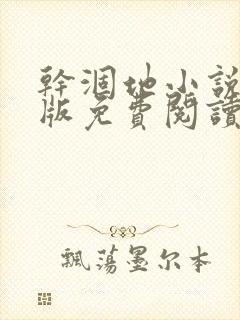 幹涸地小說
版免費閱讀
飄蕩墨尔本